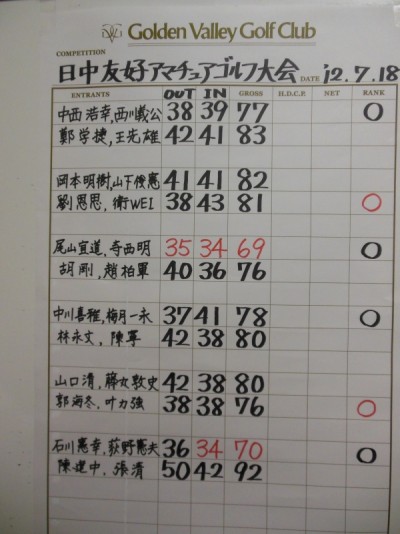 Golden Valley Golf Club
COMPETITION 日中友好アマチュアゴルフ大会 DATE 12.7.18
ENTRANTS OUT IN GROSS H.D.C.P. NET RANK
中西浩幸,西川義公 38 39 77 O
鄭学捷,王先雄 42 41 83
岡本明樹,山下俊憲 41 41 82
劉思思,衛WEI 38 43 81 O
尾山宜道,寺西明 35 34 69 O
胡剛,趙柏軍 40 36 76
中川喜雅,梅月一永 37 41 78 O
林永文,陳寧 42 38 80
山口清,藤丸敦史 42 38 80
郭海冬,叶力強 38 38 76 O
石川憲幸,荻野憲夫 36 34 70 O
陳建中,張清 50 42 92